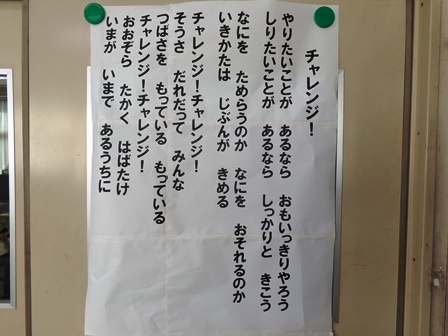 チャレンジ！
やりたいことが　あるなら　おもいっきりやろう
しりたいことが　あるなら　しっかりと　きこう
なにを　ためらうのか　なにを　おそれるのか
いきかたは　じぶんが　きめる
チャレンジ！チャレンジ！
そうさ　だれだって　みんな
つばさを　もっている　もっている
チャレンジ！チャレンジ！
おおぞら　たかく　はばたけ
いまが　いまで　あるうちに